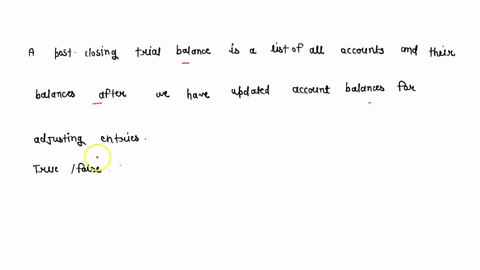 A post-closing trial balance is a list of all accounts and their
balances after we have updated account balances for
adjusting entries.
True / false.